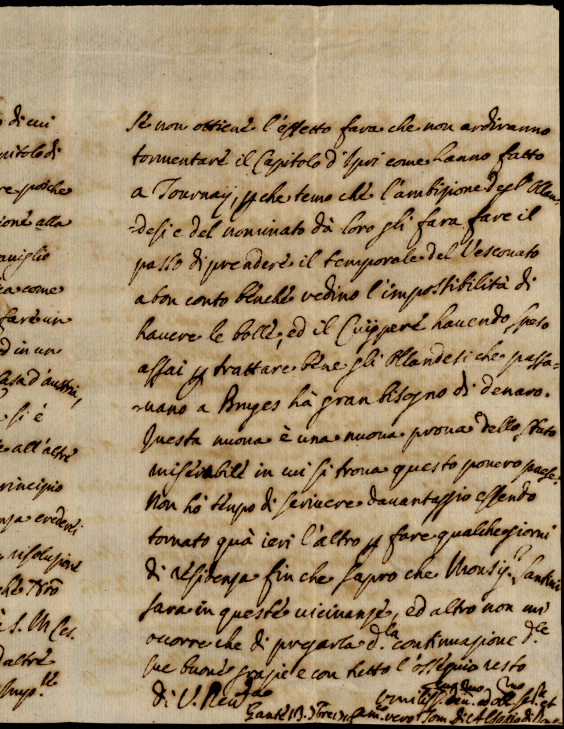 di cui
capitolo di
poiche
ione alla
aviglio
ca come
fare un
ed in un
casa d'austria,
si é
all'altre
principio
nza crederei
risoluzione
che
S. M. Ces.
d'altre
Sé non ottiené l'effetto fara che non ardiranno
tormentaré il Capitolo d'Ipri come hanno fatto
a Tournay, pche temo ché l'ambizione degl'Ollan-
-desi e del nominato dà loro gli fara fare il
passo di prenderé il temporale del Vescovato
a bon conto bénché vedino l'impossibilità di
havere le bollé, ed il Cuÿpere havendo speso
assai p trattare béne gli Ollandesi che passa-
-vano a Bruges hà gran bisogno di denaro.
Questa nuova è una nuova prova dello stato
misérabilé in cui si trova questo povero paese.
Non hò témpo di scrivere davantaggio essendo
tornato quà ieri l'altro p fare qualche giorni
di résidenza fin che sapro che Monsig.r Santini
sara in questé vicinanzé, ed altro non mi
ocorre che di pregarla d.la continuazione d.le
sue buoné grazie e con tutto l'osséquio resto
di V. Rev.ma
Gante 13.